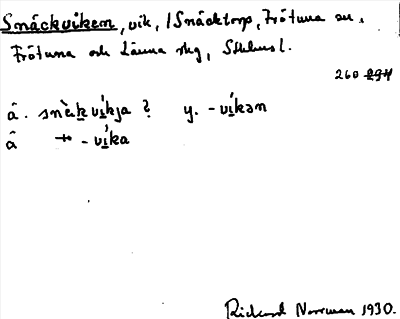 Snäckviken, vik, /Snäcktorp, Frötuna sn,
Frötuna och Länna skg, Sthlms l.
260 294
â. snèkvíkja ? y. -víkən
â + -víka
Rickard Norrman 1930.